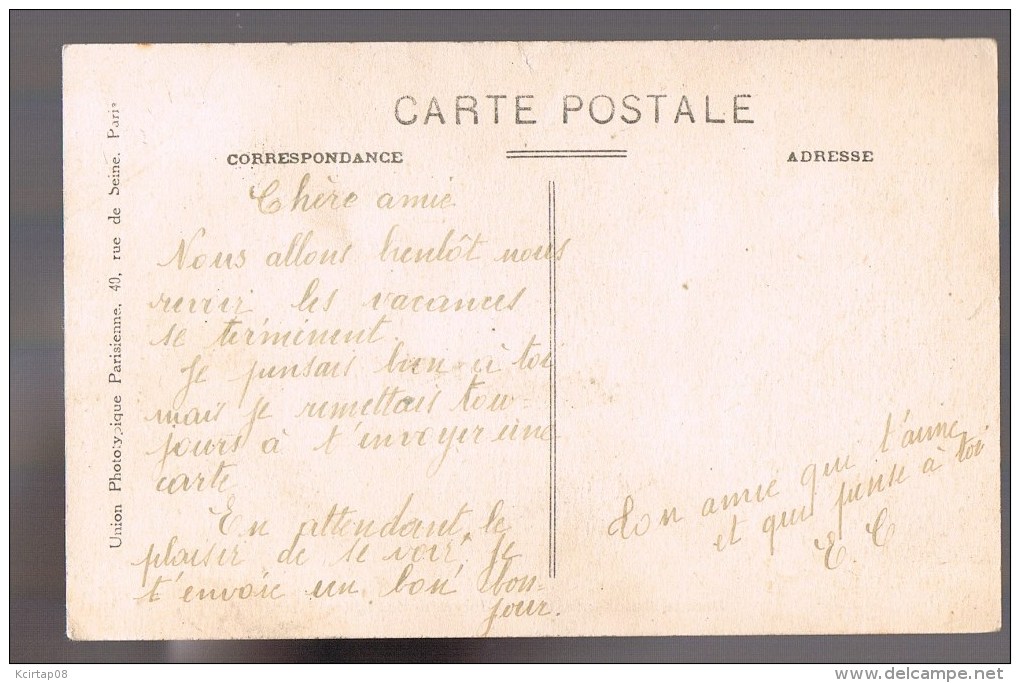 CARTE POSTALE
CORRESPONDANCE
ADRESSE
Union Phototypique Parisienne, 40, rue de Seine. Paris
Chère amie
Nous allons bentôt nous
revoir les vacances
se terminent.
Je pensais bien à toi
mais je remettais tou-
jours à t'envoyer une
carte
En attendant le
plaisir de se voir. Je
t'envoie un bon bon-
jour.
Ton amie qui t'aime
et qui pense à toi
E. C
Kcirtap08
delcampe.net